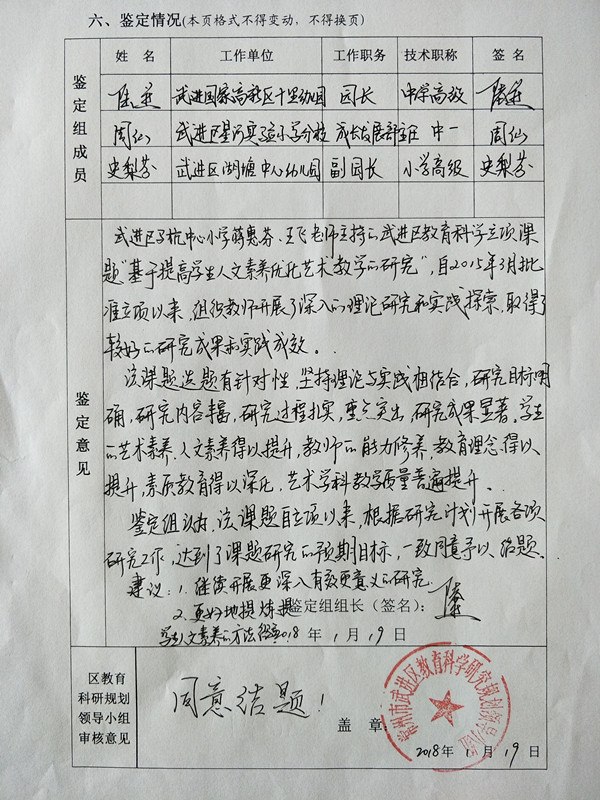 六、鉴定情况(本页格式不得变动，不得换页)
鉴定组成员
姓 名 工作单位 工作职务 技术职称 签 名
武进国家高新区十里幼儿园 园长 中学高级
周仙 武进区星河实验小学分校 成长发展部主任 中一 周仙
史梨芬 武进区湖塘中心幼儿园 副园长 小学高级 史梨芬
鉴定意见
武进区予杭中心小学蒋惠芬、王飞老师主持的武进区教育科学立项课
题“基于提高学生人文素养优化艺术教学的研究”，自2015年3月批
准立项以来，组织教师开展了深入的理论研究和实践探索，取得了
较好的研究成果和实践成效。
该课题选题有针对性，坚持理论与实践相结合，研究目标明
确，研究内容丰富，研究过程扎实，重点突出，研究成果显著。学生
的艺术素养、人文素养得以提升，教师的能力修养、教育理念得以
提升，素质教育得以深化，艺术学科教学质量普遍提升。
鉴定组认为，该课题自立项以来，根据研究计划开展各项
研究工作，达到了课题研究的预期目标，一致同意予以结题。
建议：1.继续开展更深入有效更意义的研究
2.更好地提炼提
鉴定组组长（签名）：
学生人文素养的方法 2018 年 1 月 19 日
区教育
科研规划
领导小组
审核意见
同意结题！
盖 章：
常州市武进区教育科学研究规划领导小组
2018年 1 月 19 日